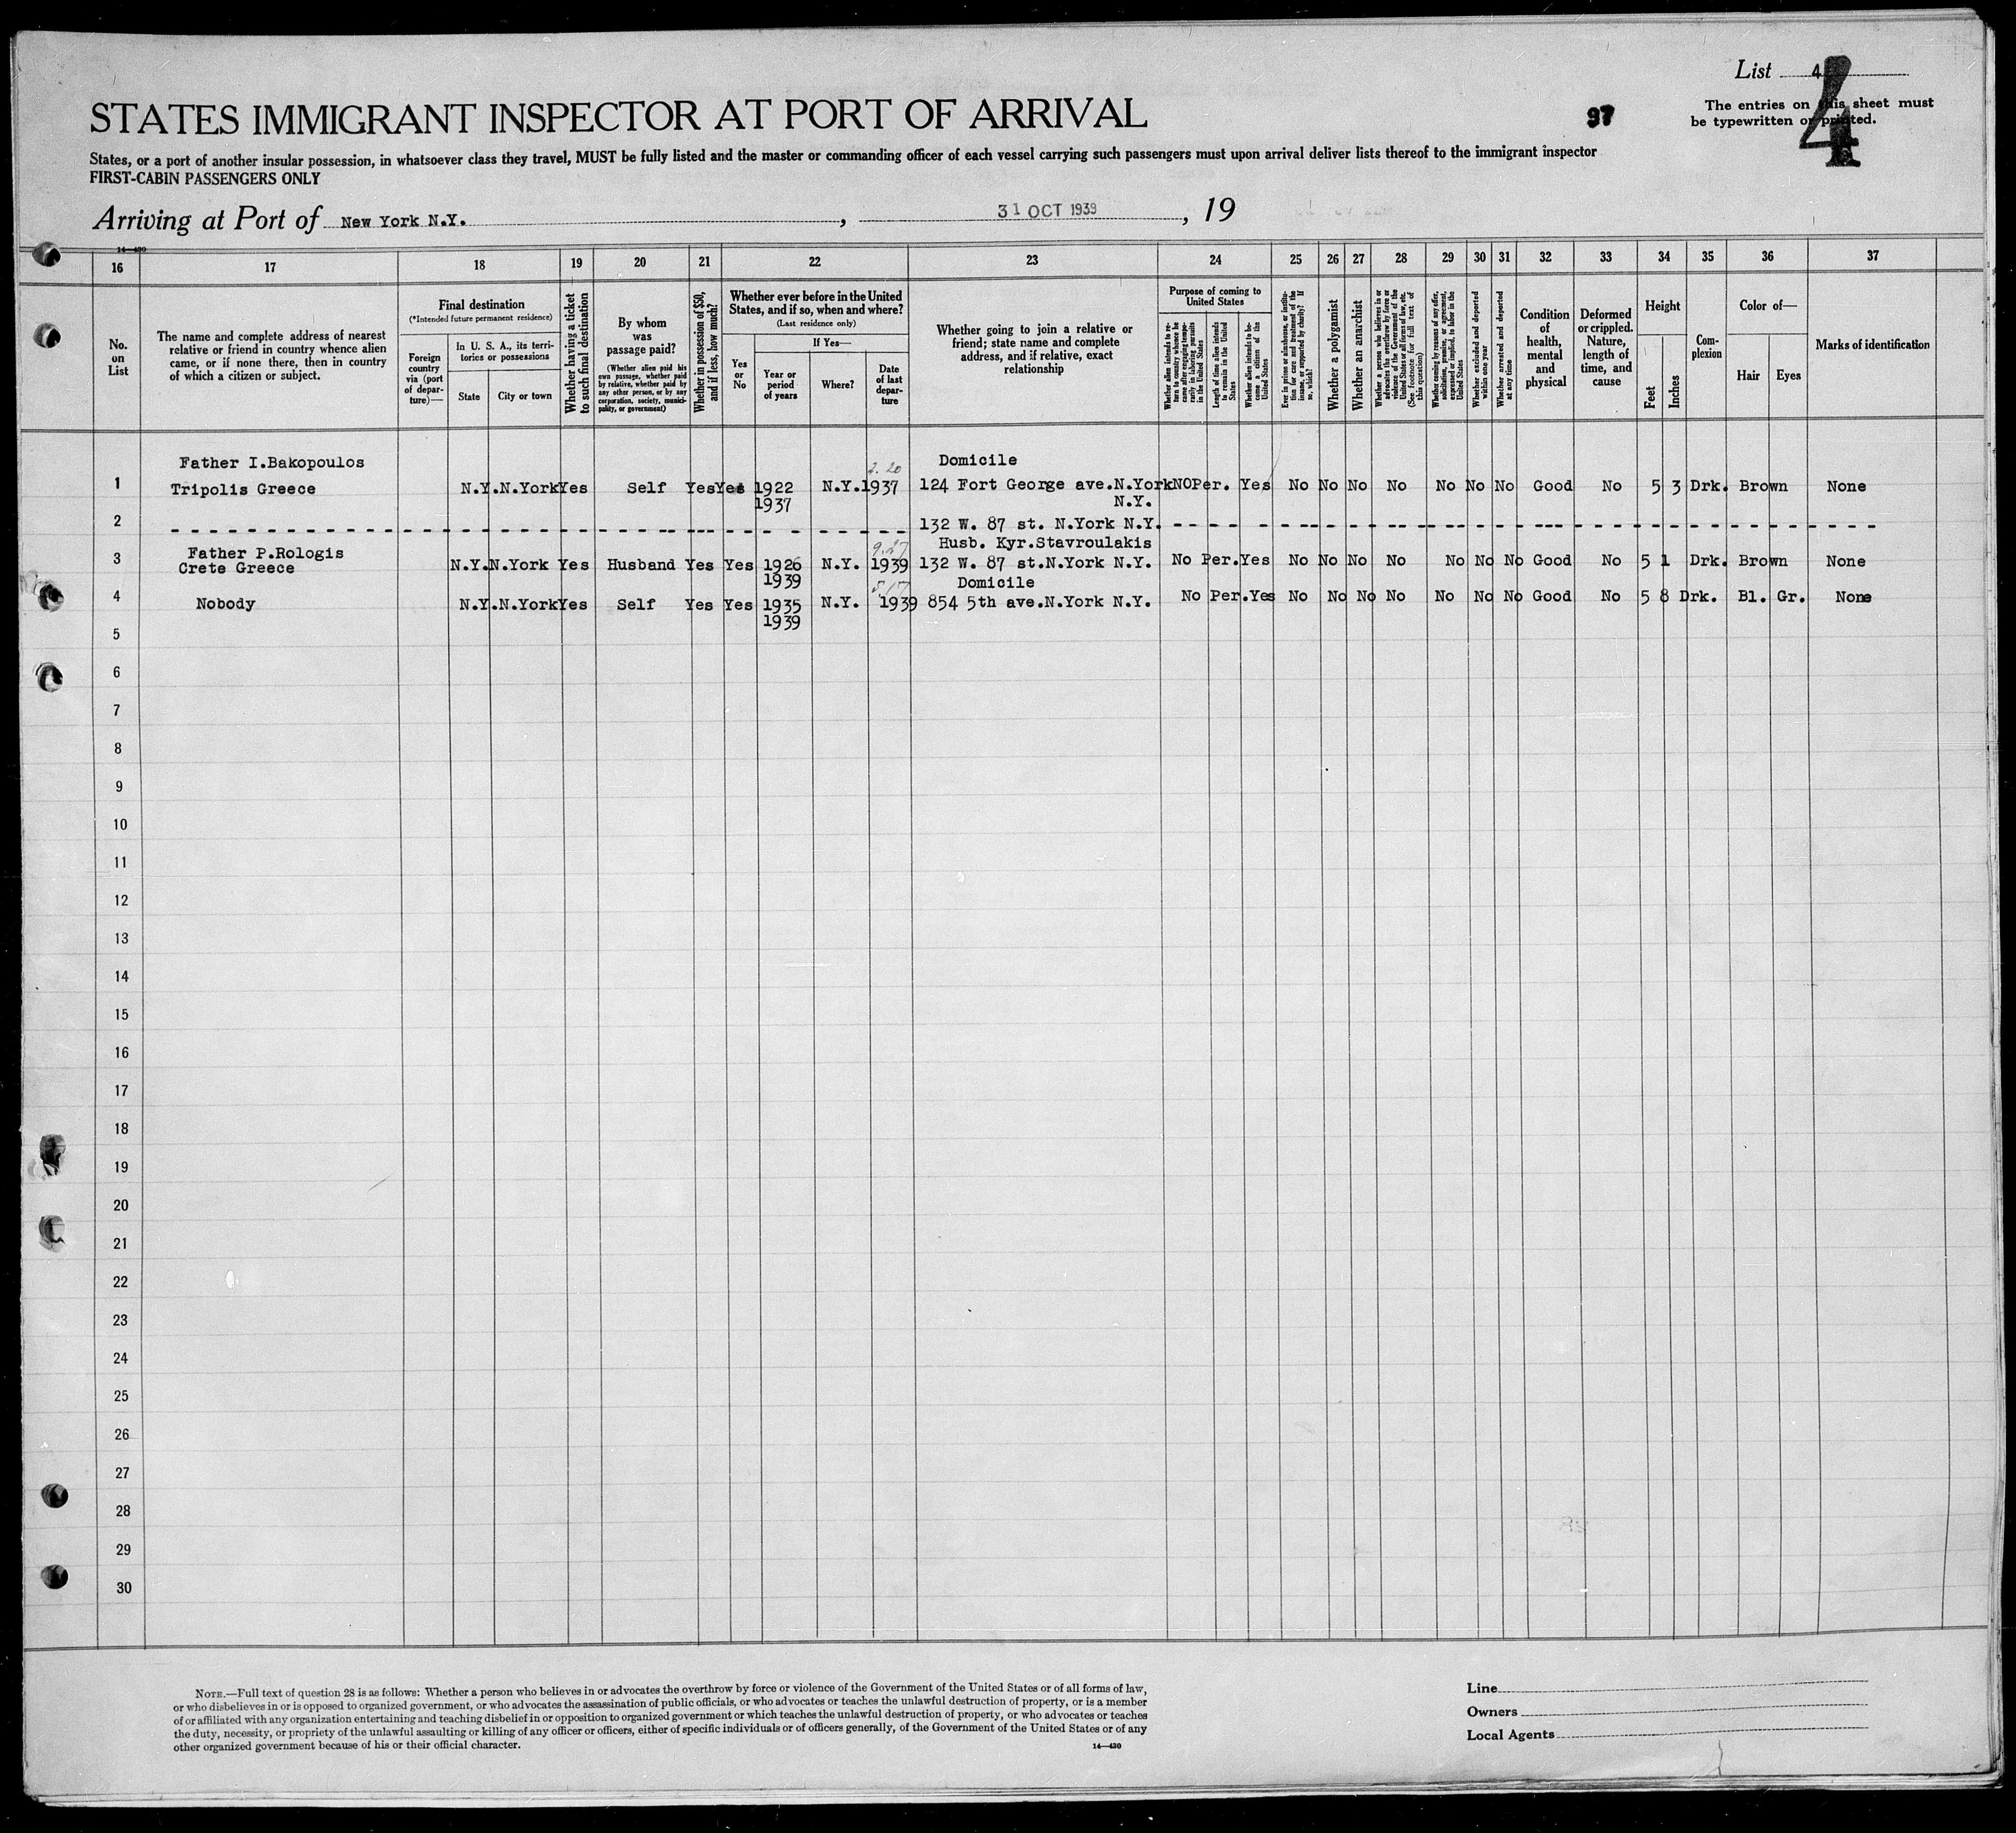 List 4
4
97
The entries on this sheet must
be typewritten or printed.
STATES IMMIGRANT INSPECTOR AT PORT OF ARRIVAL
States, or a port of another insular possession, in whatsoever class they travel, MUST be fully listed and the master or commanding officer of each vessel carrying such passengers must upon arrival deliver lists thereof to the immigrant inspector
FIRST-CABIN PASSENGERS ONLY
Arriving at Port of New York N.Y. , 31 OCT 1939 , 19
14—430
16 17 18 19 20 21 22 23 24 25 26 27 28 29 30 31 32 33 34 35 36 37
No.
on
List
The name and complete address of nearest
relative or friend in country whence alien
came, or if none there, then in country
of which a citizen or subject.
Final destination
(*Intended future permanent residence)
Foreign
country
via (port
of depar-
ture)—
In U. S. A., its terri-
tories or possessions
State
City or town
Whether having a ticket
to such final destination
By whom
was
passage paid?
(Whether alien paid his
own passage, whether paid
by relative, whether paid by
any other person, or by any
corporation, society, munici-
pality, or government)
Whether in possession of $50,
and if less, how much?
Whether ever before in the United
States, and if so, when and where?
(Last residence only)
Yes
or
No
If Yes—
Year or
period
of years
Where?
Date
of last
depar-
ture
Whether going to join a relative or
friend; state name and complete
address, and if relative, exact
relationship
Purpose of coming to
United States
Whether alien intends to re-
turn to country whence he
came after engaging tempo-
rarily in laboring pursuits
in the United States
Length of time alien intends
to remain in the United
States
Whether alien intends to be-
come a citizen of the
United States
Ever in prison or almshouse, or institu-
tion for care and treatment of the
insane, or supported by charity? If
so, which?
Whether a polygamist
Whether an anarchist
Whether a person who believes in or
advocates the overthrow by force or
violence of the Government of the
United States or all forms of law, etc.
(See footnote for full text of
this question)
Whether coming by reason of any offer,
solicitation, promise, or agreement,
expressed or implied, to labor in the
United States
Whether excluded and deported
within one year
Whether arrested and deported
at any time
Condition
of
health,
mental
and
physical
Deformed
or crippled.
Nature,
length of
time, and
cause
Height
Feet
Inches
Com-
plexion
Color of—
Hair
Eyes
Marks of identification
Father I.Bakopoulos Domicile
2. 20
1 Tripolis Greece N.Y. N.York Yes Self Yes Yes 1922 N.Y. 1937 124 Fort George ave.N.York NO Per. Yes No No No No No No No Good No 5 3 Drk. Brown None
1937 N.Y.
2 132 W. 87 st. N.York N.Y.
Father P.Rologis 9.27 Husb. Kyr.Stavroulakis
3 Crete Greece N.Y. N.York Yes Husband Yes Yes 1926 N.Y. 1939 132 W. 87 st.N.York N.Y. No Per. Yes No No No No No No No Good No 5 1 Drk. Brown None
1939 Domicile
4 Nobody N.Y. N.York Yes Self Yes Yes 1935 N.Y. 1939 854 5th ave.N.York N.Y. No Per. Yes No No No No No No No Good No 5 8 Drk. Bl. Gr. None
1939
5
6
7
8
9
10
11
12
13
14
15
16
17
18
19
20
21
22
23
24
25
26
27
28
29
30
NOTE.—Full text of question 28 is as follows: Whether a person who believes in or advocates the overthrow by force or violence of the Government of the United States or of all forms of law,
or who disbelieves in or is opposed to organized government, or who advocates the assassination of public officials, or who advocates or teaches the unlawful destruction of property, or is a member
of or affiliated with any organization entertaining and teaching disbelief in or opposition to organized government or which teaches the unlawful destruction of property, or who advocates or teaches
the duty, necessity, or propriety of the unlawful assaulting or killing of any officer or officers, either of specific individuals or of officers generally, of the Government of the United States or of any
other organized government because of his or their official character.
14—430
Line
Owners
Local Agents